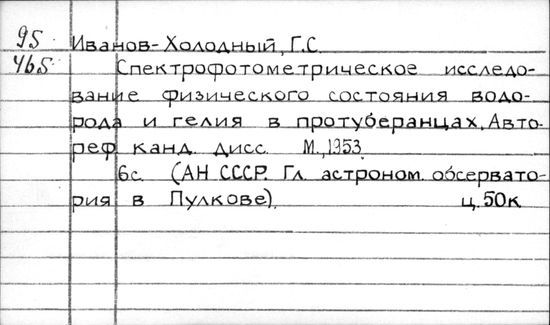 95 Иванов-Холодный, Г.С.
465 Спектрофотометрическое исследо-
вание физического состояния водо-
рода и гелия в протуберанцах. Авто-
реф. канд. дисс. М., 1953.
6с. (АН СССР. Гл. астроном. обсервато-
рия в Пулкове). ц. 50к